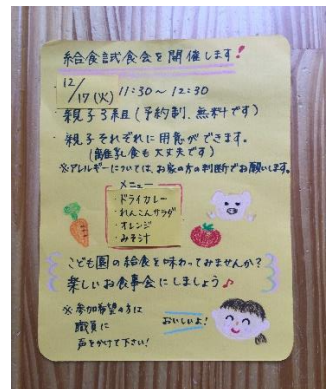 給食試食会を開催します！
12/17(火) 11:30～12:30
親子3組(予約制、無料です)
親子それぞれに用意ができます。
(離乳食も大丈夫です)
※アレルギーについては、お家の方の判断でお願いします。
メニュー
・ドライカレー
・れんこんサラダ
・オレンジ
・みそ汁
こども園の給食を味わってみませんか？
楽しいお食事会にしましょう♪
※参加希望の方は
職員に
声をかけて下さい！
おいしいよ！